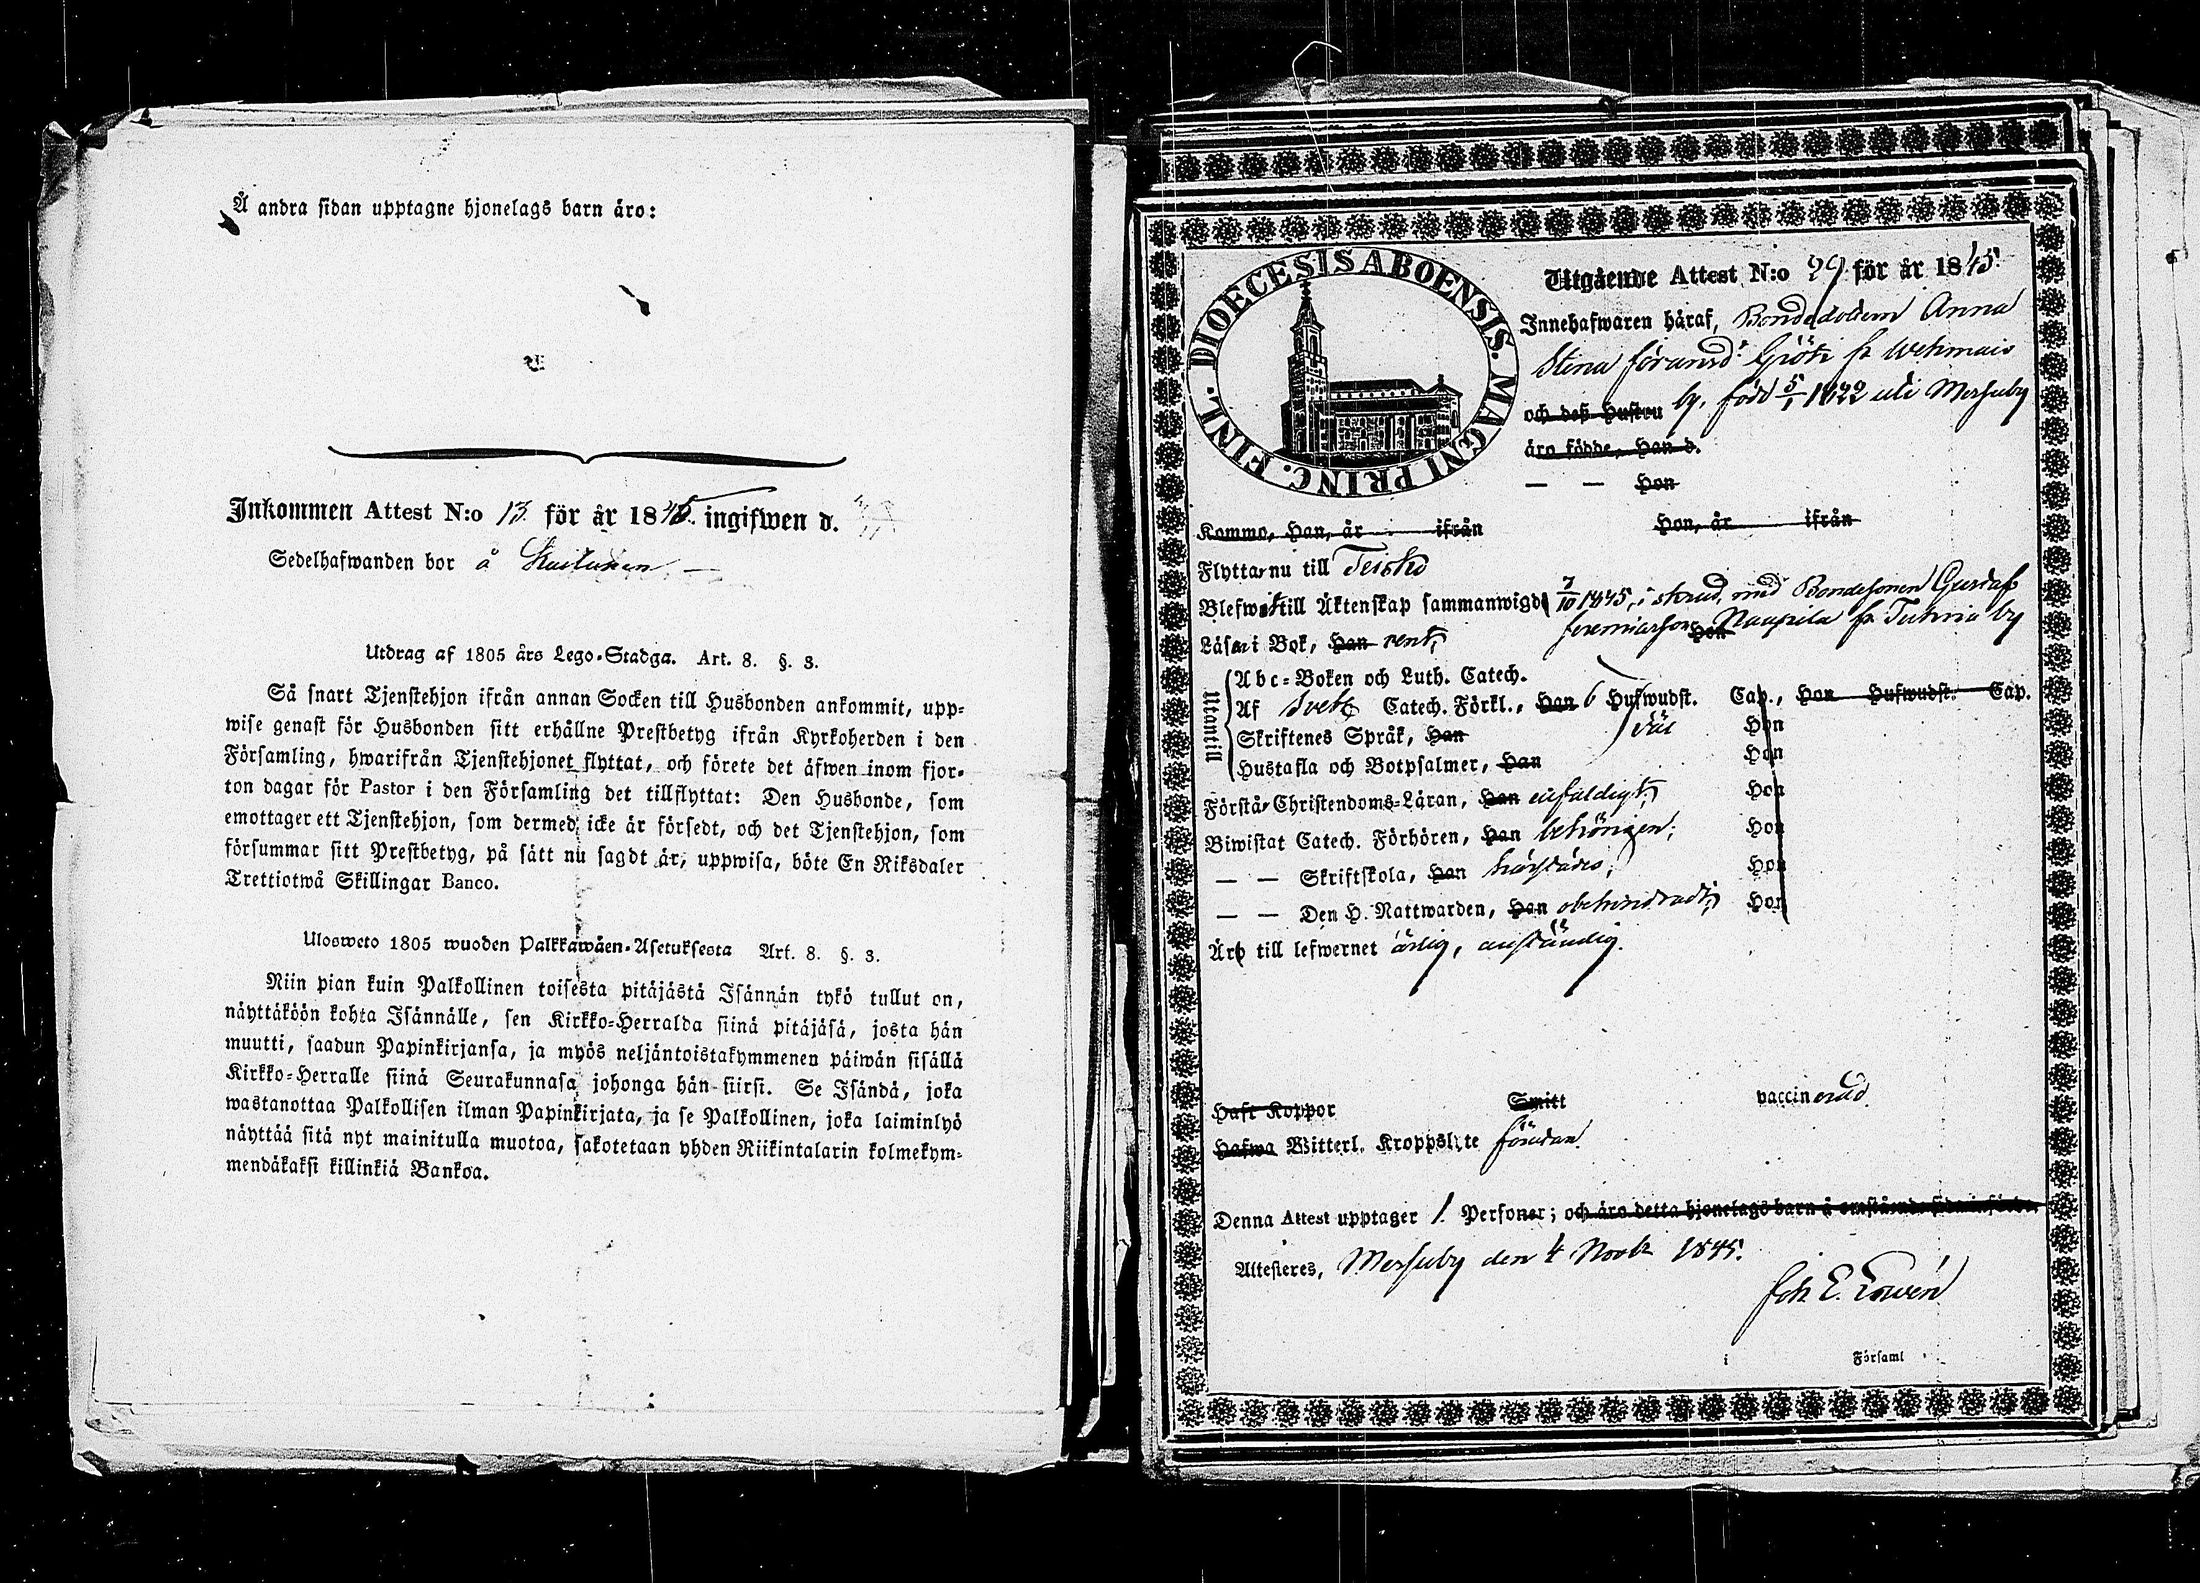 Å andra sidan upptagne hjonelags barn äro:
Inkommen Attest N:o 13. för år 1845. ingifwen d.
Sedelhafwanden bor å
Utdrag af 1805 års Lego-Stadga. Art. 8. §. 3.
Så snart Tjenstehjon ifrån annan Socken till Husbonden ankommit, upp-
wise genast för Husbonden sitt erhållne Prestbetyg ifrån Kyrkoherden i den
Församling, hwarifrån Tjenstehjonet flyttat, och förete det äfwen inom fjor-
ton dagar för Pastor i den Församling det tillflyttat: Den Husbonde, som
emottager ett Tjenstehjon, som dermed icke är försedt, och det Tjenstehjon, som
försummar sitt Prestbetyg, på sätt nu sagdt är, uppwisa, böte En Riksdaler
Trettiotwå Skillingar Banco.
Ulosweto 1805 wuoden Palkkawäen-Asetuksesta Art. 8. §. 3.
Niin pian kuin Palkollinen toisesta pitäjästä Isännän tykö tullut on,
näyttäköön kohta Isännälle, sen Kirkko-Herralda siinä pitäjäsä, josta hän
muutti, saadun Papinkirjansa, ja myös neljäntoistakymmenen päiwän sisällä
Kirkko-Herralle siinä Seurakunnasa johonga hän siirsi. Se Isändä, joka
wastanottaa Palkollisen ilman Papinkirjata, ja se Palkollinen, joka laiminlyö
näyttää sitä nyt mainitulla muotoa, sakotetaan yhden Riikintalarin kolmekym-
mendäkaksi killinkiä Bankoa.
DIOECESIS ABOENSIS. MAGNI PRINC. FINL.
Utgående Attest N:o 29 för år 1845.
Innehafwaren häraf, Bondedottern Anna
Stina fr Wehmais
och deß Hustru by, född 5/1 1822 uti Messuby
äro födde, Han d.
— — Hon
Kommo, Han, år ifrån Hon, år ifrån
Flytta nu till Teisko
Blefwit till Äktenskap sammanwigd 7/10 1845, med Bondesonen Gustaf
Läsa i Bok, Han rent, Hon Jeremiasson fr by
Utantill
Abc-Boken och Luth. Catech.
Af Catech. Förkl., Han 6 Hufwudst. Cap., Hon Hufwudst. Cap.
Skriftenes Språk, Han väl Hon
Hustafla och Botpsalmer, Han Hon
Förstå Christendoms-Läran, Han enfaldigt, Hon
Biwistat Catech. Förhören, Han behörigen; Hon
— — Skriftskola, Han härstädes; Hon
— — Den H. Nattwarden, Han obehindradt, Hon
Äro till lefwernet ärlig, anständig.
Haft Koppor Smitt vaccinerad.
Hafwa Witterl. Kroppslyte
Denna Attest upptager 1. Personer; och äro detta hjonelags barn å omstående sida införde.
Attesteres, Messuby den 4 Novbr 1845.
Joh. E.
i Församl